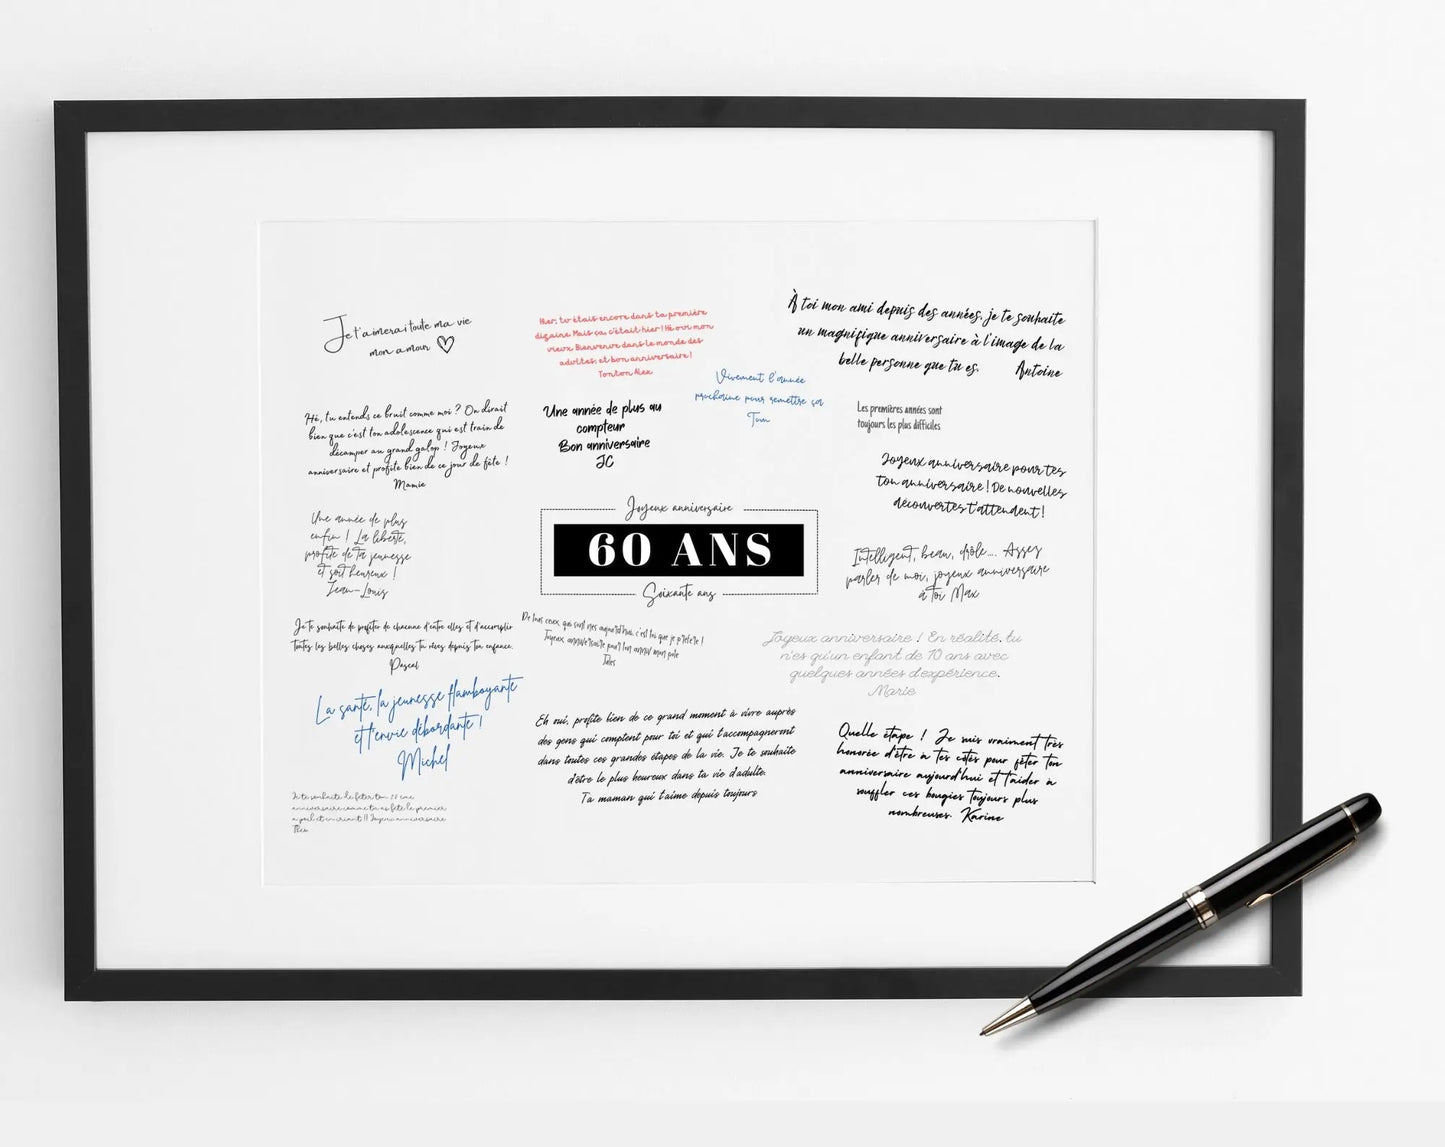 Je t'aimerai toute ma vie
mon amour
Hier, tu étais encore dans ta première
dizaine. Mais ça, c'était hier ! Hé oui mon
vieux. Bienvenue dans le monde des
adultes, et bon anniversaire !
Tonton Alex
À toi mon ami depuis des années, je te souhaite
un magnifique anniversaire à l'image de la
belle personne que tu es. Antoine
Vivement l'année
prochaine pour remettre ça
Tom
Hé, tu entends ce bruit comme moi ? On dirait
bien que c'est ton adolescence qui est train de
décamper au grand galop ! Joyeux
anniversaire et profite bien de ce jour de fête !
Mamie
Une année de plus au
compteur
Bon anniversaire
JC
Les premières années sont
toujours les plus difficiles
Joyeux anniversaire pour tes
ton anniversaire ! De nouvelles
découvertes t'attendent !
Une année de plus
enfin ! La liberté,
profite de ta jeunesse
et soit heureux !
Jean-Louis
Joyeux anniversaire
60 ANS
Soixante ans
Intelligent, beau, drôle.... Assez
parler de moi, joyeux anniversaire
à toi Max
Je te souhaite de profiter de chacune d'entre elles et d'accomplir
toutes les belles choses auxquelles tu rêves depuis ton enfance.
Pascal
De tous ceux, qui sont nés aujourd'hui, c'est toi que je préfère !
Joyeux anniversaire pour ton anniv mon pote
Jules
Joyeux anniversaire ! En réalité, tu
n'es qu'un enfant de 10 ans avec
quelques années d'expérience.
Marie
La santé, la jeunesse flamboyante
et l'envie débordante !
Michel
Eh oui, profite bien de ce grand moment à vivre auprès
des gens qui comptent pour toi et qui t'accompagneront
dans toutes ces grandes étapes de la vie. Je te souhaite
d'être le plus heureux dans ta vie d'adulte.
Ta maman qui t'aime depuis toujours
Quelle étape ! Je suis vraiment très
honorée d'être à tes côtés pour fêter ton
anniversaire aujourd'hui et t'aider à
souffler ces bougies toujours plus
nombreuses. Karine
Je te souhaite de fêter ton
anniversaire comme tu as fêté le premier
à poil et en criant !! Joyeux anniversaire